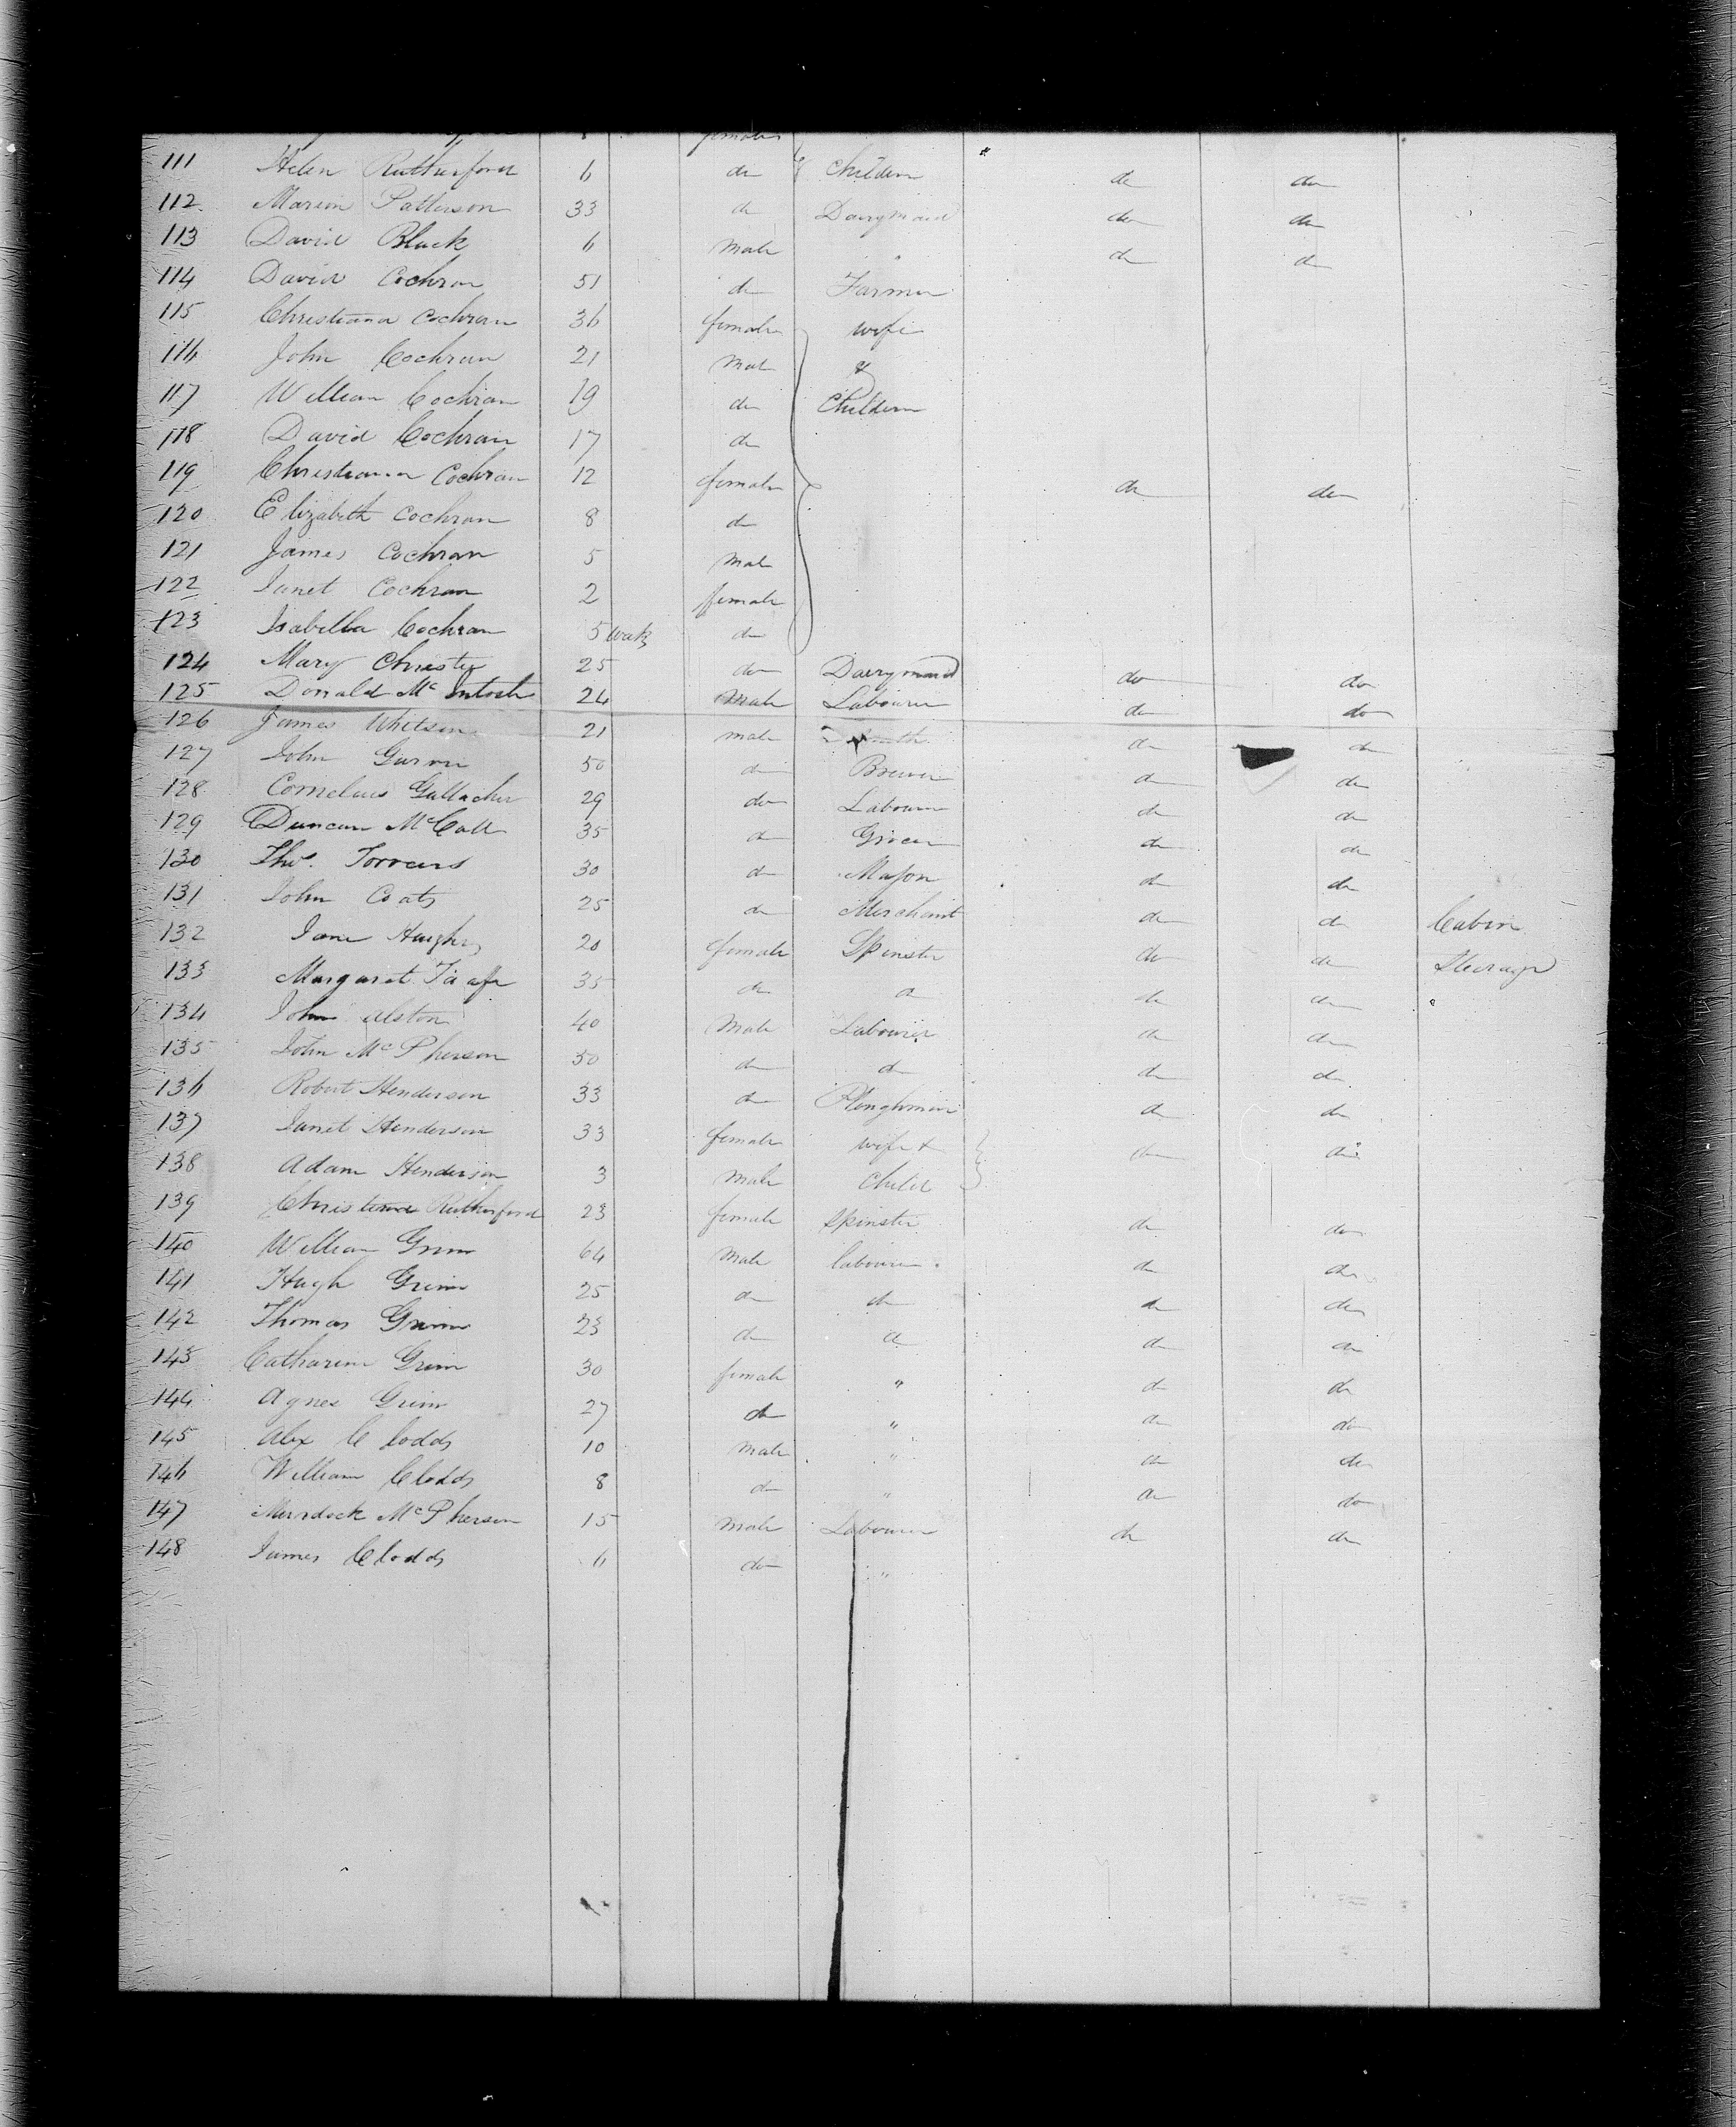 female
111 Helen Rutherford 6 do & Children do do
112 Marion Patterson 33 do Dairymaid do do
113 David Black 6 Male " do do
114 David Cochran 51 do Farmer
115 Christiana Cochran 36 female wife
116 John Cochran 21 Male &
117 William Cochran 19 do Children
118 David Cochran 17 do
119 Christiana Cochran 12 female do do
120 Elizabeth Cochran 8 do
121 James Cochran 5 Male
122 Janet Cochran 2 female
123 Isabella Cochran 5 weeks do
124 Mary Christie 25 do Dairymaid do do
125 Donald McIntosh 24 Male Labourer do do
126 James Whitson 21 male do do
127 John 50 do Brewer do do
128 Cornelius Gallacher 29 do Labourer do do
129 Duncan McCall 35 do Grocer do do
130 Thos. Torrans 30 do Mason do do
131 John Coats 25 do Merchant do do Cabin
132 Jane Hughes 20 female Spinster do do Steerage
133 Margaret Taafe 35 do do do do "
134 John Alston 40 Male Labourer do do
135 John McPherson 50 do do do do
136 Robert Henderson 33 do Ploughman do do
137 Janet Henderson 33 female wife & do do
138 Adam Henderson 3 Male Child
139 Christiana Rutherford 23 female Spinster do do
140 William Grim 64 Male labourer do do
141 Hugh Grim 25 do do do do
142 Thomas Grim 23 do do do do
143 Catharine Grim 30 female " do do
144 Agnes Grim 27 do " do do
145 Alex Clodds 10 Male " do do
146 William Clodds 8 do " do do
147 Murdock McPherson 15 Male Labourer do do
148 James Clodds 6 do "